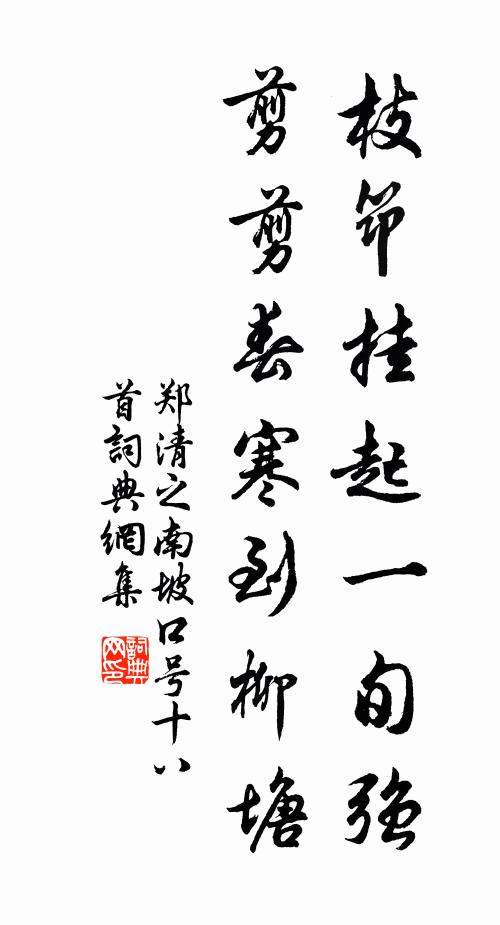 枝笻挂起一旬强
剪剪春寒到柳塘
郑清之南坡口号十八
首詞典網集
詞典网印